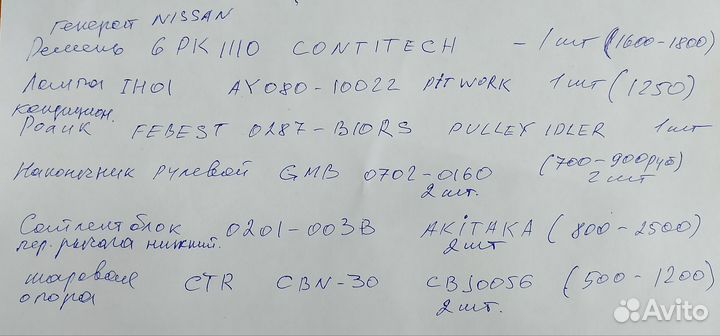 генерат NISSAN
Ремень 6PK1110 CONTITECH - 1 шт (1600-1800)
Лампа IH01 AY080-10022 PIT WORK 1 шт (1250)
кондицион.
Ролик FEBEST 0287-B10RS PULLEY IDLER 1 шт
Наконечник рулевой GMB 0702-0160 (700-900руб)
2 шт. 2 шт
Сайлентблок 0201-003B AKITAKA (800-2500)
пер. рычага нижний. 2 шт
шаровая CTR CBN-30 CBJ0056 (500-1200)
опора 2 шт.
Avito